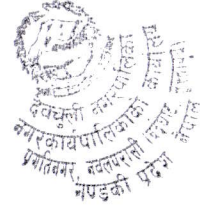 देवचुली नगरपालिका
नगरकार्यपालिकाको कार्यालय
प्रगतिनगर, नवलपरासी
गण्डकी प्रदेश नेपाल